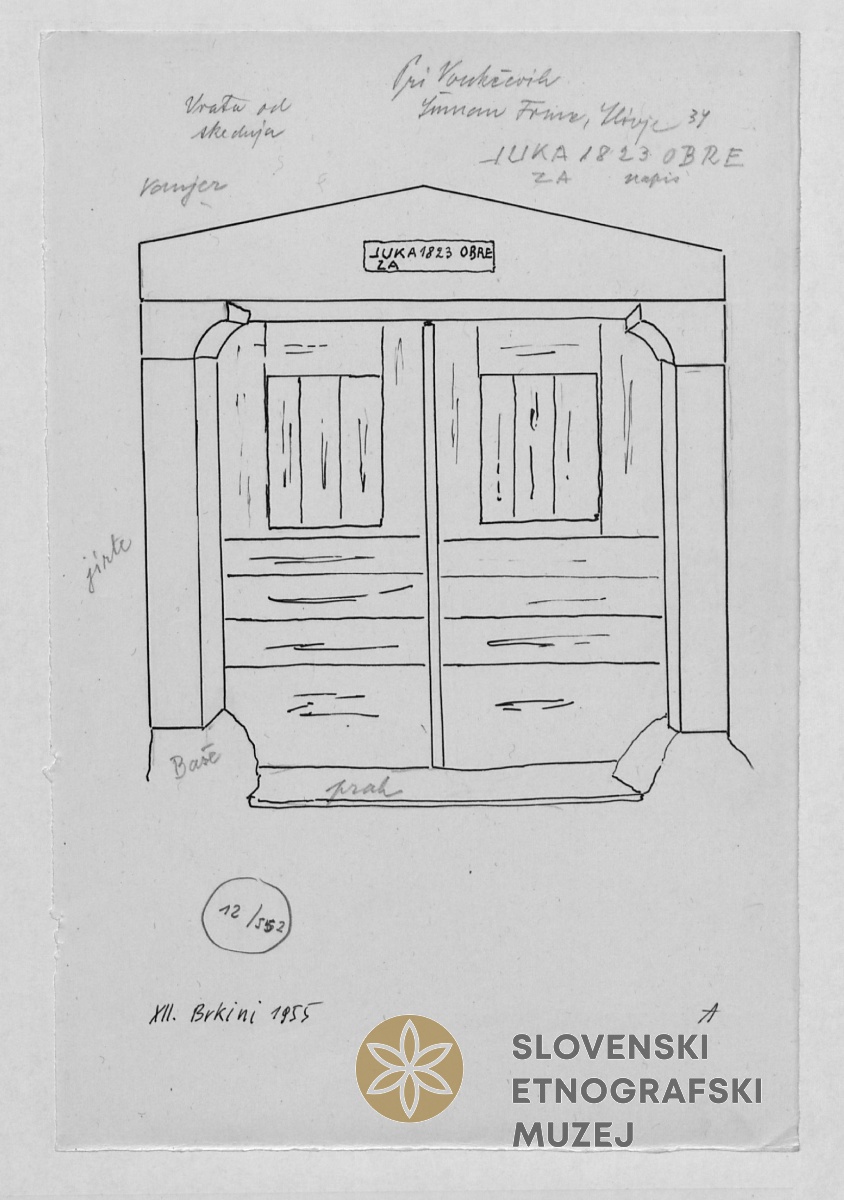 Vrata od
skednja
Pri
Franc, 34
JUKA 1823 OBRE
ZA napis
JUKA 1823 OBRE
ZA
jirte
Baše
prah
12/552
XII. Brkini 1955
A
SLOVENSKI
ETNOGRAFSKI
MUZEJ